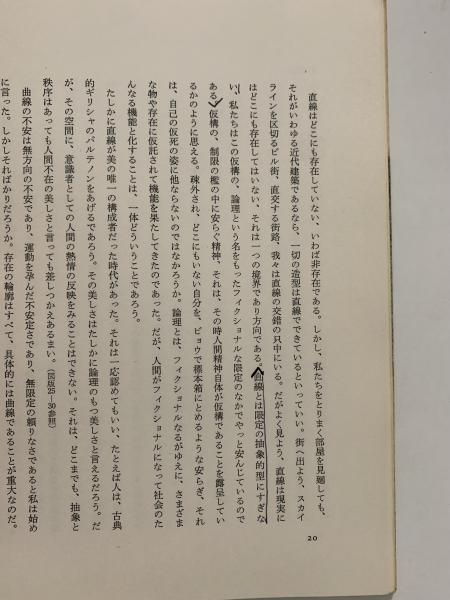 直線はどこにも存在していない、いわば非存在である。しかし、私たちをとりまく部屋を見廻しても、
それがいわゆる近代建築であるなら、一切の造型は直線でできているといっていい。街へ出よう、スカイ
ラインを区切るビル街、直交する街路、我々は直線の交錯の只中にいる。だがよく見よう、直線は現実に
はどこにも存在してはいない、それは一つの境界であり方向である。曲線とは限定の抽象的型にすぎな
い、私たちはこの仮構の、論理という名をもったフィクショナルな限定のなかでやっと安んじているので
ある。仮構の、制限の檻の中に安らぐ精神、それは、その時人間精神自体が仮構であることを露呈してい
るかのように思える。疎外され、どこにもいない自分を、ビョウで標本箱にとめるような安らぎ、それ
は、自己の仮死の姿に他ならないのではなかろうか。論理とは、フィクショナルなるがゆえに、さまざま
な物や存在に仮託されて機能を果たしてきたのであった。だが、人間がフィクショナルになって社会のた
んなる機能と化することは、一体どういうことであろう。
たしかに直線が美の唯一の構成者だった時代があった。それは一応認めてもいい、たとえば人は、古典
的ギリシャのパルテノンをあげるであろう。その美しさはたしかに論理のもつ美しさと言えるだろう。だ
が、その空間に、意識者としての人間の熱情の反映をみることはできない。それは、どこまでも、抽象と
秩序はあっても人間不在の美しさと言っても差しつかえあるまい。(図版25—30参照)
曲線の不安は無方向の不安であり、運動を孕んだ不安定さであり、無限定の頼りなさであると私は始め
に言った。しかしそればかりだろうか。存在の輪廓はすべて、具体的には曲線であることが重大なのだ。
20